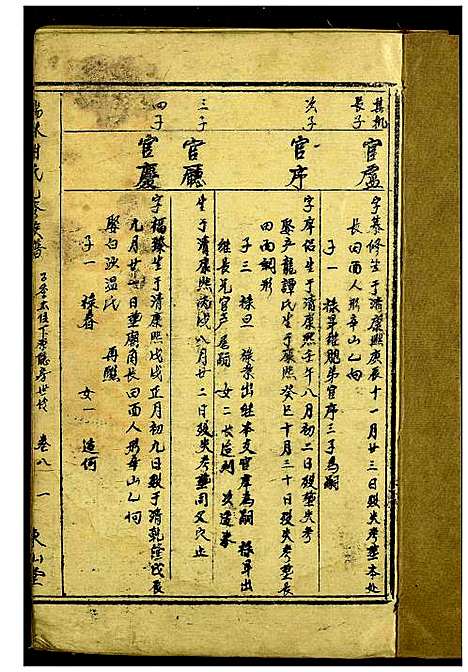 其机
长子
官盧
字慕修生于清康熙庚辰十一月廿三日殁失考葬本处
長田面人形辛山乙向
子一 禄早继胞弟官序三子為嗣
次子
官序
字庠侣生于清康熙壬午八月初二日殁葬失考
娶尹龍譚氏生于康熙癸巳十月三十日殁失考葬長
田面
子三 禄旦 禄荣出继本支官庠為嗣 禄早出
继長兄官卢為嗣 女二 長造 次造
三子
官廳
生于清康熙丙戌八月廿二日殁失考葬同父穴止
四子
官慶
字福臻生于清康熙戊戌正月初九日殁于清乾隆戊辰
九月廿七日葬廟背長田面人形辛山乙向
娶白汝温氏 再醮
子一 禄春 女一 造何
氏九修族譜
卷八 一
東山堂